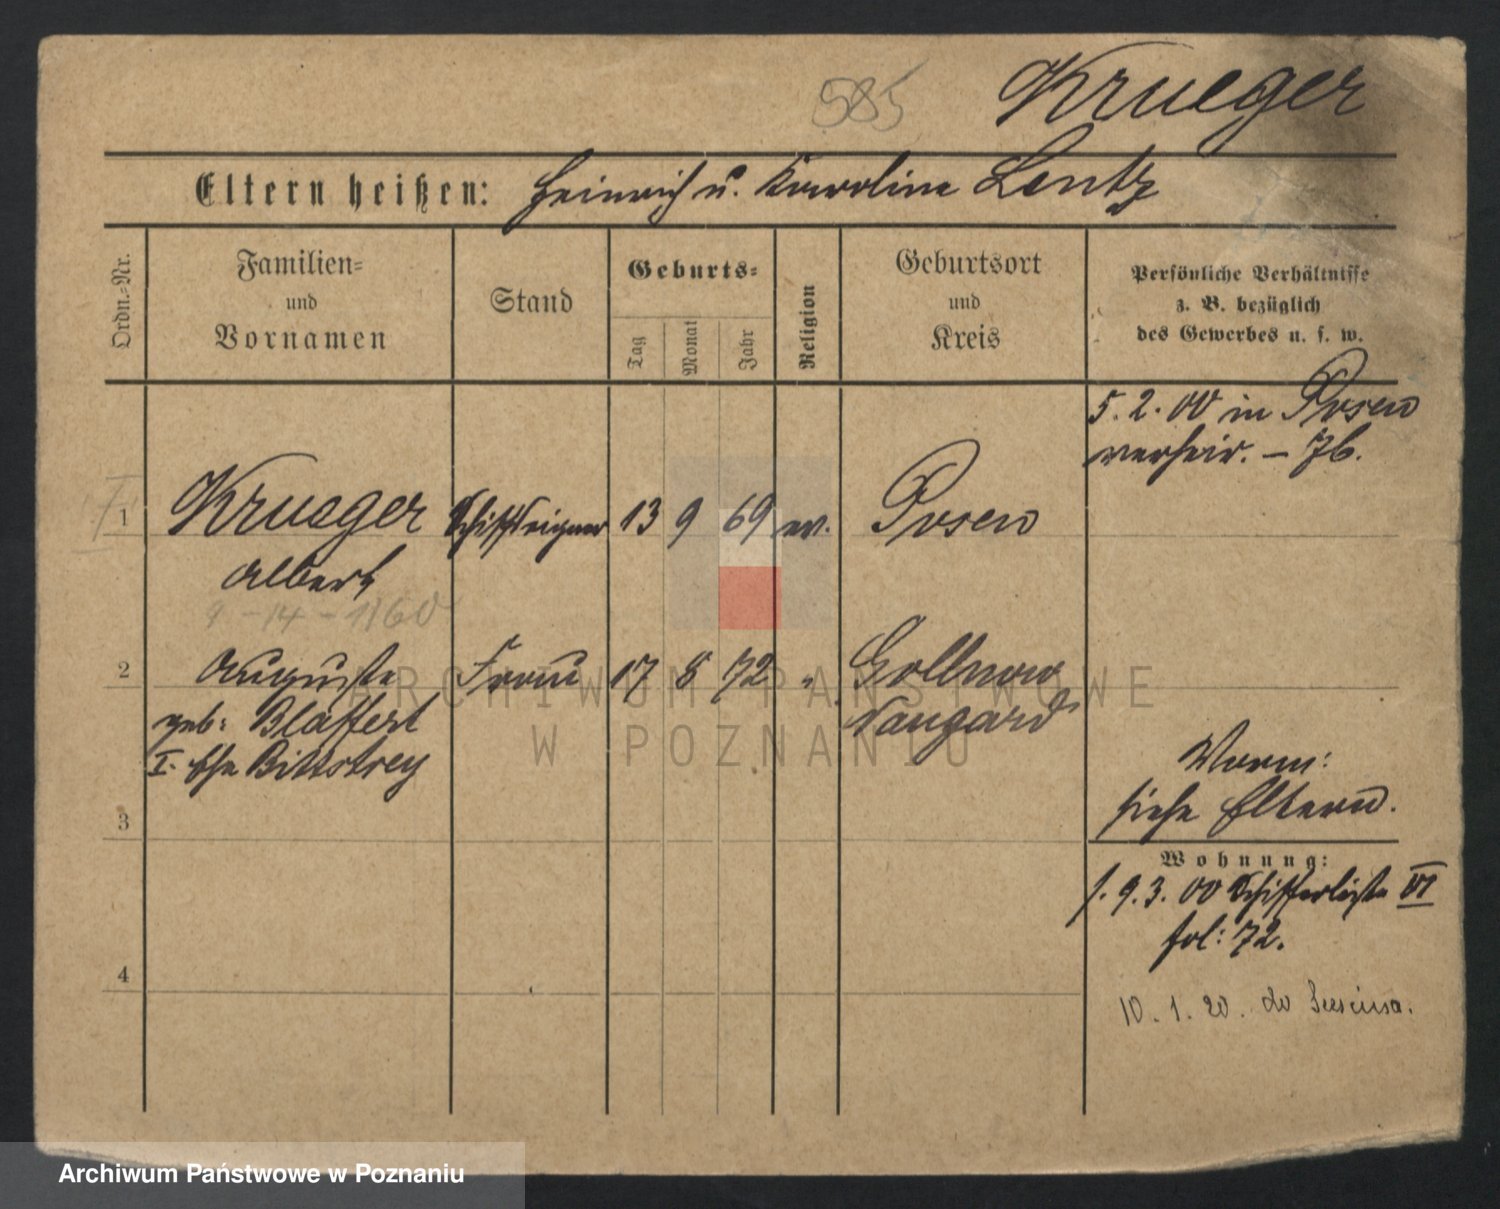 585 Krueger
Eltern heißen: Heinrich u. Karoline Lentz
Ordn.-Nr.
Familien-
und
Vornamen
Stand
Geburts-
Tag
Monat
Jahr
Religion
Geburtsort
und
Kreis
Persönliche Verhältnisse
z. B. bezüglich
des Gewerbes u. s. w.
5. 2. 00 in Posen
verheir. – 76.
1 Krueger Schiffseigner 13 9 69 ev. Posen
Albert
2 Auguste Frau 17 8 72 " Gollnow
geb: Blaffert Naugard
I. Ehe Bittstrey
Worm:
siehe Eltern.
3
Wohnung:
f. 9. 3. 00 Schifferliste VI
fol: 72.
4
10. 1. 20. do
ARCHIWUM PAŃSTWOWE
W POZNANIU
Archiwum Państwowe w Poznaniu